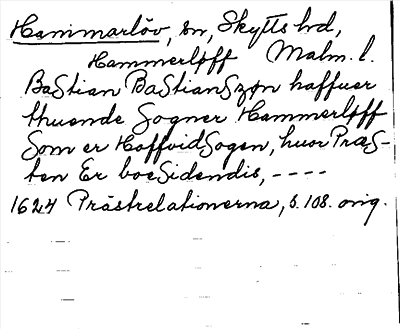 Hammarlöv, sn, Skytts hd,
Hammerlöff Malm. l.
BaStian BaStianSzøn haffuer
thuende Sogner Hammerlöff
Som er HoffvidSogen, huor PræS-
ten Er boeSidendis, ----
1624 Prästrelationerna, s. 108. orig.